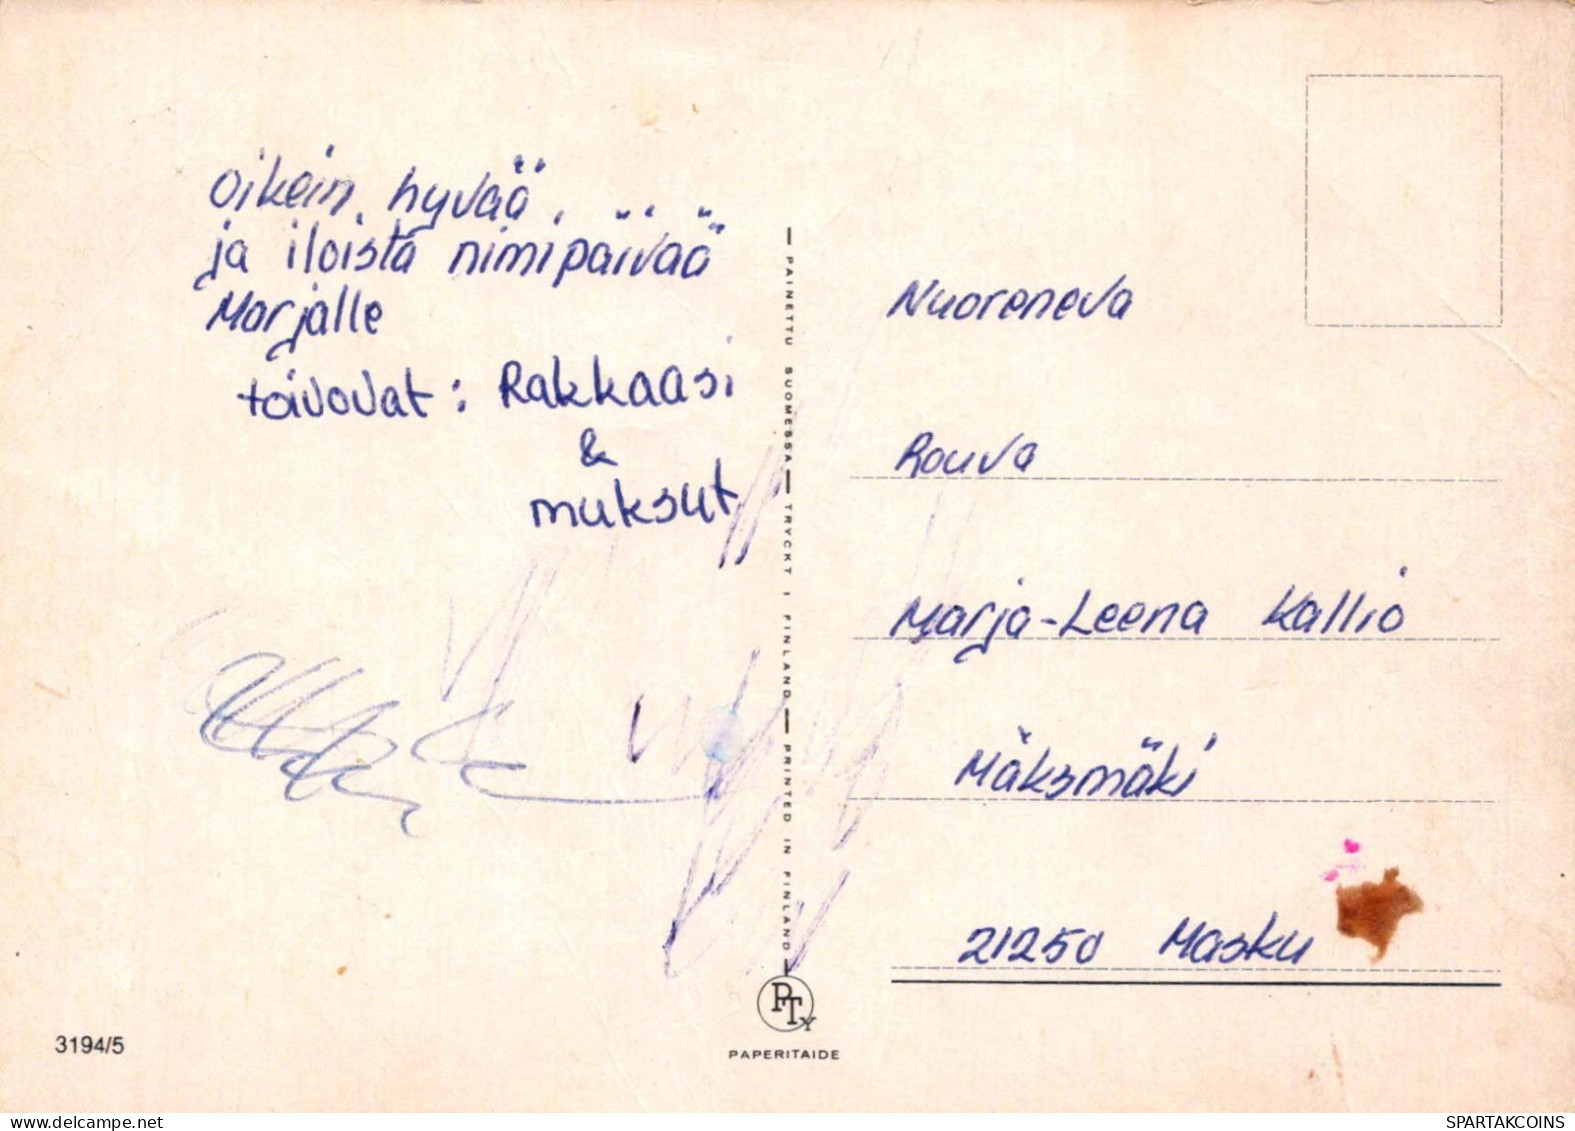 oikein hyvää
ja iloista nimipäivää
Marjalle
toivovat: Rakkaasi
&
muksut
Nuoreneva
Rouva
Marja-Leena Kallio
Mäksmäki
21250 Masku
PAINETTU SUOMESSA — TRYCKT I FINLAND — PRINTED IN FINLAND
PTY
PAPERITAIDE
3194/5
delcampe.net
SPARTAKCOINS